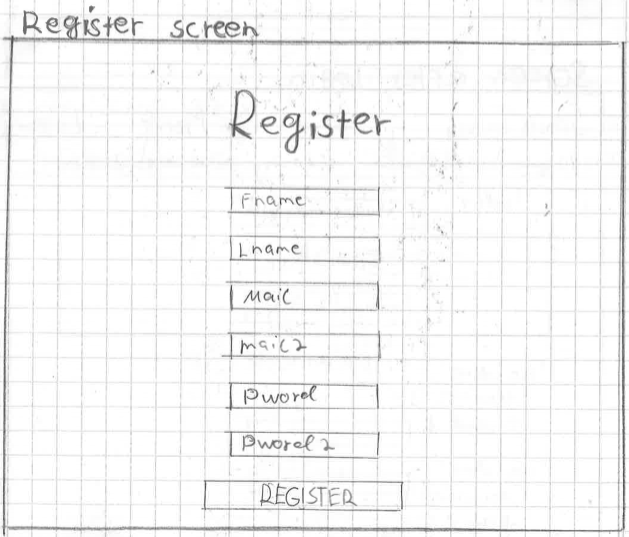 Register screen
Register
Fname
Lname
Mail
mail2
Pword
Pword2
REGISTER